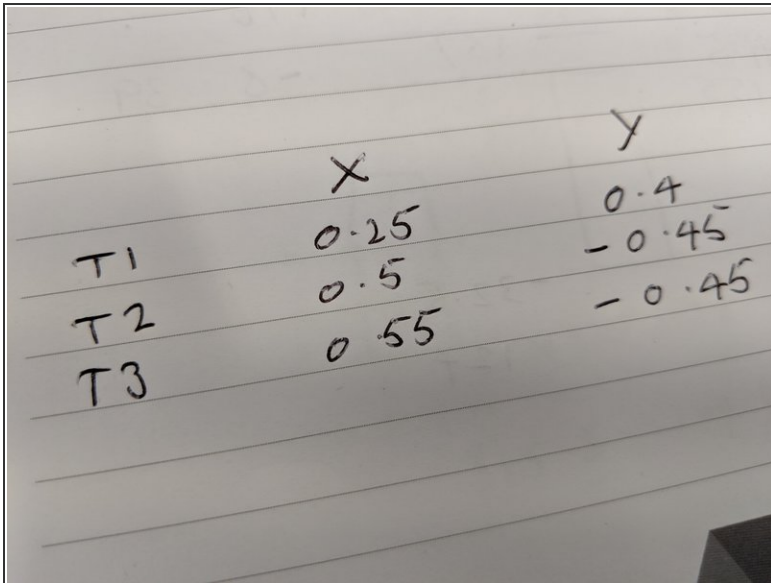 X Y
T1 0.25 0.4
T2 0.5 -0.45
T3 0.55 -0.45